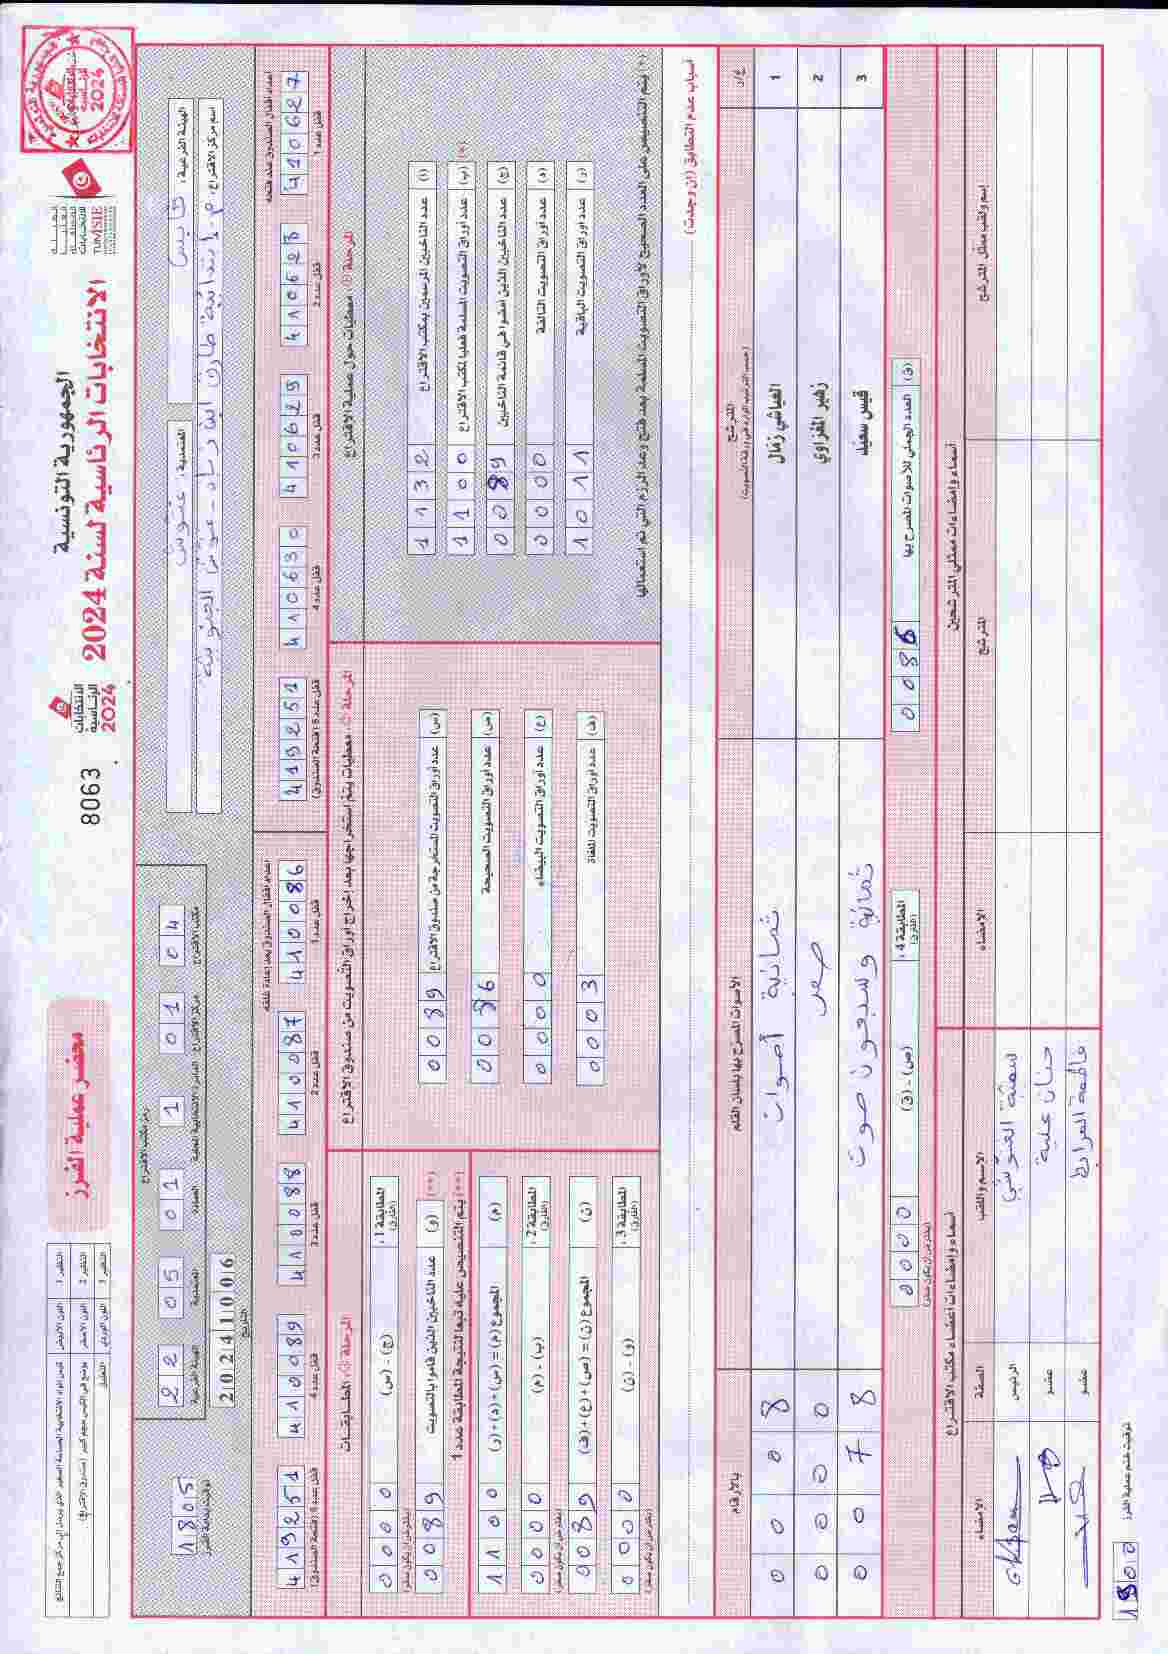 الجمهورية التونسية
الانتخابات الرئاسية لسنة 2024
الانتخابات الرئاسية 2024
8063
محضر عملية الفرز
الهيئة الفرعية : قابس
المعتمدية : غنوش
رمز مكتب الاقتراع
22 05 01 1 010 04
الهيئة الفرعية المعتمدية العمادة الدائرة الانتخابية المحلية مركز الاقتراع مكتب الاقتراع
التاريخ
20241006
توقيت بداية الفرز
1805
أعداد أقفال الصندوق عند فتحه
410627 410628 410629 410630 419251
قفل عدد 1 قفل عدد 2 قفل عدد 3 قفل عدد 4 قفل عدد 5 (فتحة الصندوق)
أعداد أقفال الصندوق بعد إعادة غلقه
410086 410087 410088 410089 419251
قفل عدد 1 قفل عدد 2 قفل عدد 3 قفل عدد 4 قفل عدد 5 (فتحة الصندوق)
المرحلة ① : معطيات حول عملية الاقتراع
(أ) عدد الناخبين المرسمين بمكتب الاقتراع 1132
(ب) عدد أوراق التصويت المسلمة فعليا لمكتب الاقتراع 1100
(ج) عدد الناخبين الذين أمضوا في قائمة الناخبين 0089
(د) عدد أوراق التصويت التالفة 0000
(ر) عدد أوراق التصويت الباقية 1011
(*) يتم التنصيص على العدد الصحيح لأوراق التصويت المسلمة بعد فتح وعد الرزم التي تم استعمالها
المرحلة ② : معطيات يتم استخراجها بعد إخراج أوراق التصويت من صندوق الاقتراع
(س) عدد أوراق التصويت المستخرجة من صندوق الاقتراع 0089
(ص) عدد أوراق التصويت الصحيحة 0086
(ع) عدد أوراق التصويت البيضاء 0000
(ف) عدد أوراق التصويت الملغاة 0003
المرحلة ③ : المطابقات
المطابقة 1 : (الفارق) (ج) - (س) 0000
(و) عدد الناخبين الذين قاموا بالتصويت 0089
(**) يتم التنصيص عليه تبعا لنتيجة المطابقة عدد 1
(م) المجموع (م) = (س) + (د) + (ر) 1100
المطابقة 2 : (الفارق) (ب) - (م) 0000
(ن) المجموع (ن) = (ص) + (ع) + (ف) 0089
المطابقة 3 : (الفارق) (و) - (ن) 0000
أسباب عدم التطابق (إن وجدت)
ع/ر المترشح الأصوات المصرح بها بلسان القلم بالأرقام
(حسب الترتيب الوارد في ورقة التصويت)
1 العياشي زمال ثمانية أصوات 0008
2 زهير المغزاوي صفر 0000
3 قيس سعيد ثمانية وسبعون صوت 0078
(ق) العدد الجملي للأصوات المصرح بها 0086
المطابقة 4 : (الفارق) (ص) - (ق) 0000
أسماء وإمضاءات ممثلي المترشحين
إسم ولقب ممثل المترشح المترشح الإمضاء
أسماء وإمضاءات أعضاء مكتب الاقتراع
الاسم واللقب الصفة الإمضاء
الرئيس
حنان علية عضو
عضو
توقيت ختم عملية الفرز